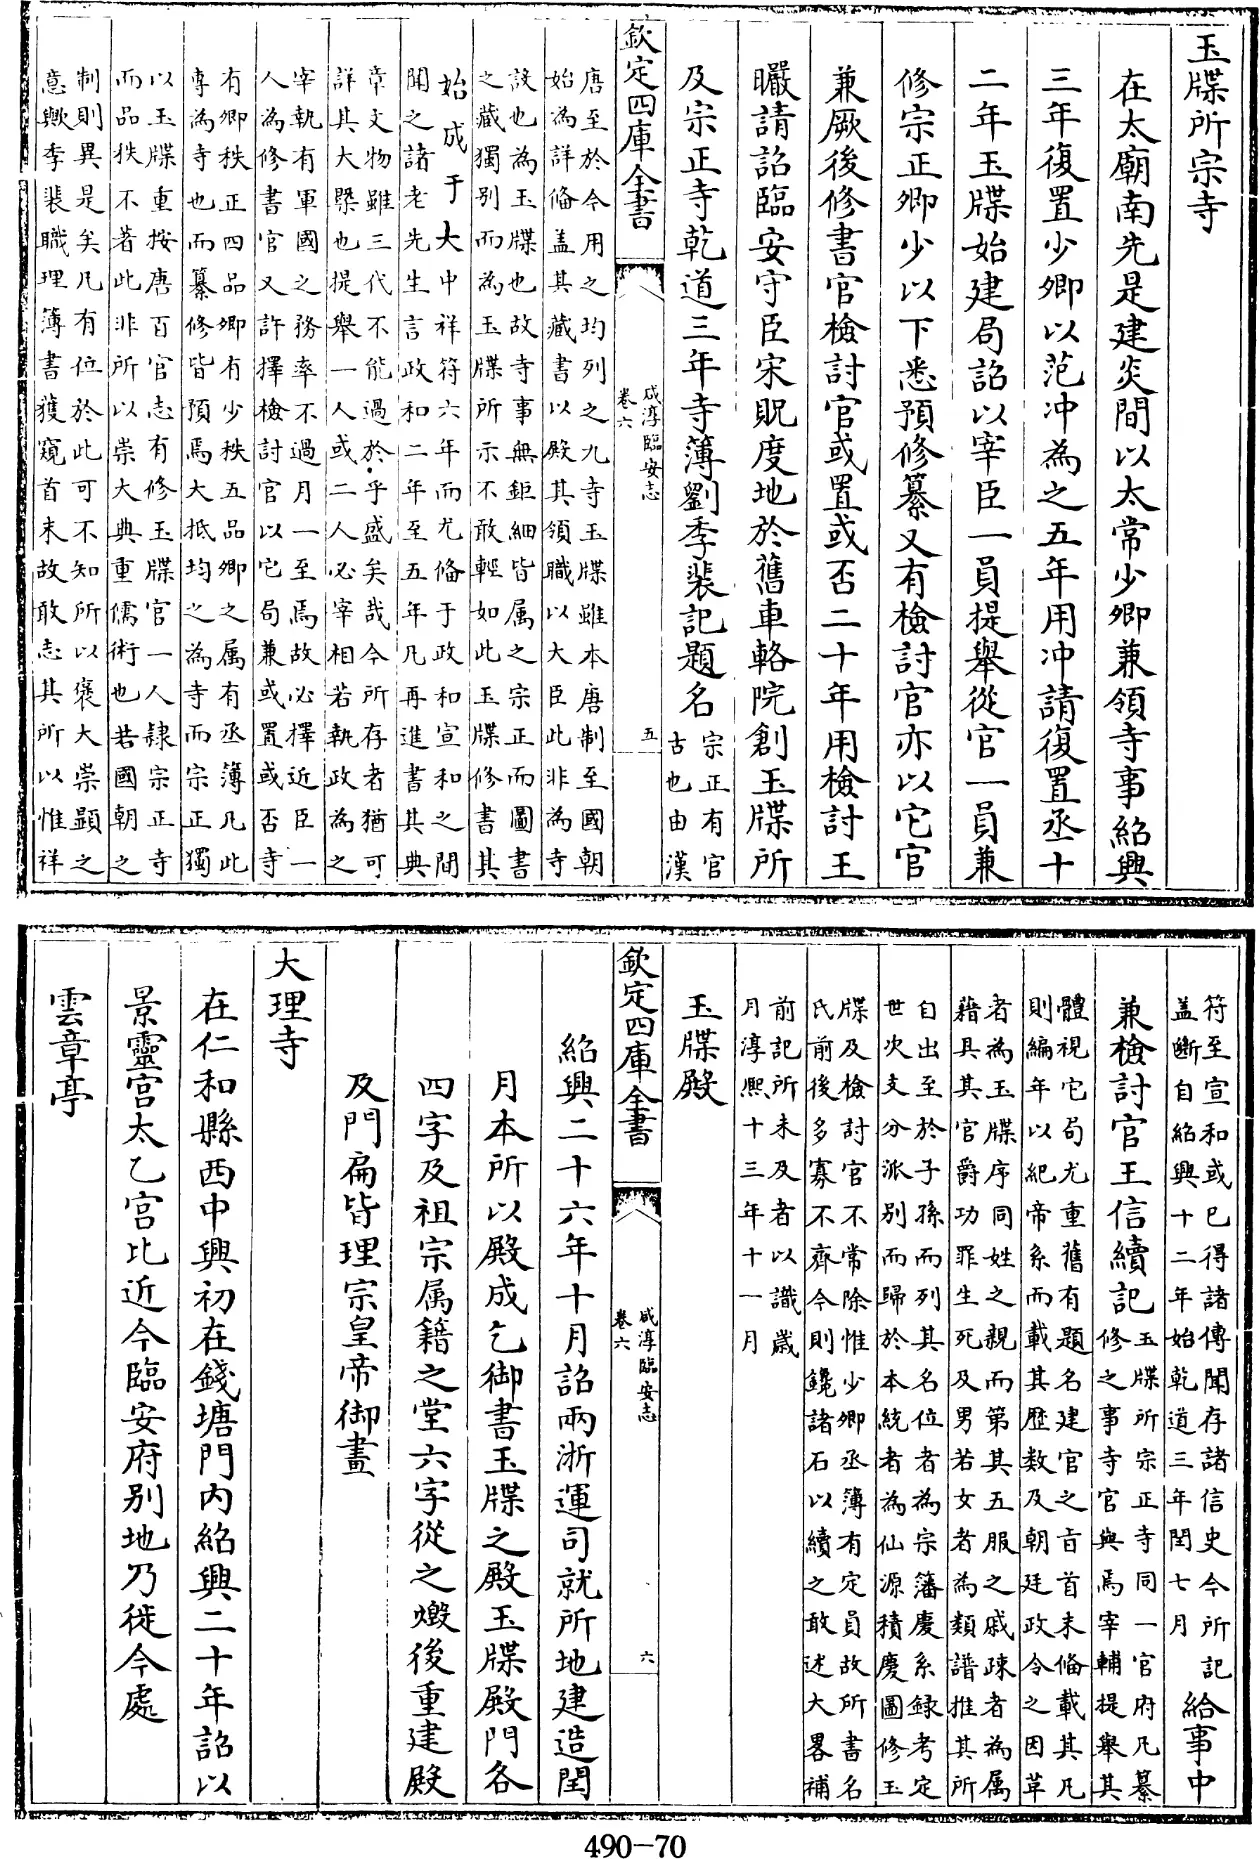 玉牒所宗寺
在太廟南先是建炎間以太常少卿兼領寺事紹興
三年復置少卿以范冲為之五年用冲請復置丞十
二年玉牒始建局詔以宰臣一員提舉從官一員兼
修宗正卿少以下悉預修纂又有檢討官亦以它官
兼厥後修書官檢討官或置或否二十年用檢討王
曮請詔臨安守臣宋貺度地於舊車輅院創玉牒所
及宗正寺乾道三年寺薄劉季裴記題名
宗正有官
古也由漢
欽定四庫全書
咸淳臨安志
卷六
五
唐至於今用之均列之九寺玉牒雖本唐制至國朝
始為詳備盖其藏書以殿其領職以大臣此非為寺
設也為玉牒也故寺事無鉅細皆属之宗正而圖書
之藏獨别而為玉牒所示不敢輕如此玉牒修書其
始成于大中祥符六年而尤備于政和宣和之間
聞之諸老先生言政和二年至五年凡再進書其典
章文物雖三代不能過於乎盛矣哉今所存者猶可
詳其大槩也提舉一人或二人必宰相若執政為之
宰執有軍國之務率不過月一至焉故必擇近臣一
人為修書官又許擇檢討官以它局兼或置或否寺
有卿秩正四品卿有少秩五品卿之属有丞簿凡此
專為寺也而纂修皆預焉大抵均之為寺而宗正獨
以玉牒重按唐百官志有修玉牒官一人隸宗正寺
而品秩不著此非所以崇大典重儒術也若國朝之
制則異是矣凡有位於此可不知所以褒大崇顯之
意歟季裴職理簿書獲窺首末故敢志其所以惟祥
符至宣和或已得諸傳聞存諸信史今所記
盖斷自紹興十二年始乾道三年閏七月
給事中
兼檢討官王信續記
玉牒所宗正寺同一官府凡纂
修之事寺官與焉宰輔提舉其
體視它局尤重舊有題名建官之㫖首末備載其凡
則編年以紀帝系而載其歴數及朝廷政令之因革
者為玉牒序同姓之親而第其五服之戚疎者為属
籍具其官爵功罪生死及男若女者為類譜推其所
自出至於子孫而列其名位者為宗藩慶系錄考定
世次支分派别而歸於本統者為仙源積慶圖修玉
牒及檢討官不常除惟少卿丞簿有定員故所書名
氏前後多寡不齊今則鑱諸石以續之敢述大畧補
前記所未及者以識歲
月淳熙十三年十一月
玉牒殿
欽定四庫全書
咸淳臨安志
卷六
六
紹興二十六年十月詔兩浙運司就所地建造閏
月本所以殿成乞御書玉牒之殿玉牒殿門各
四字及祖宗属籍之堂六字從之燬後重建殿
及門扁皆理宗皇帝御書
大理寺
在仁和縣西中興初在錢塘門内紹興二十年詔以
景靈宫太乙宫比近今臨安府别地乃徙今處
雲章亭
490-70